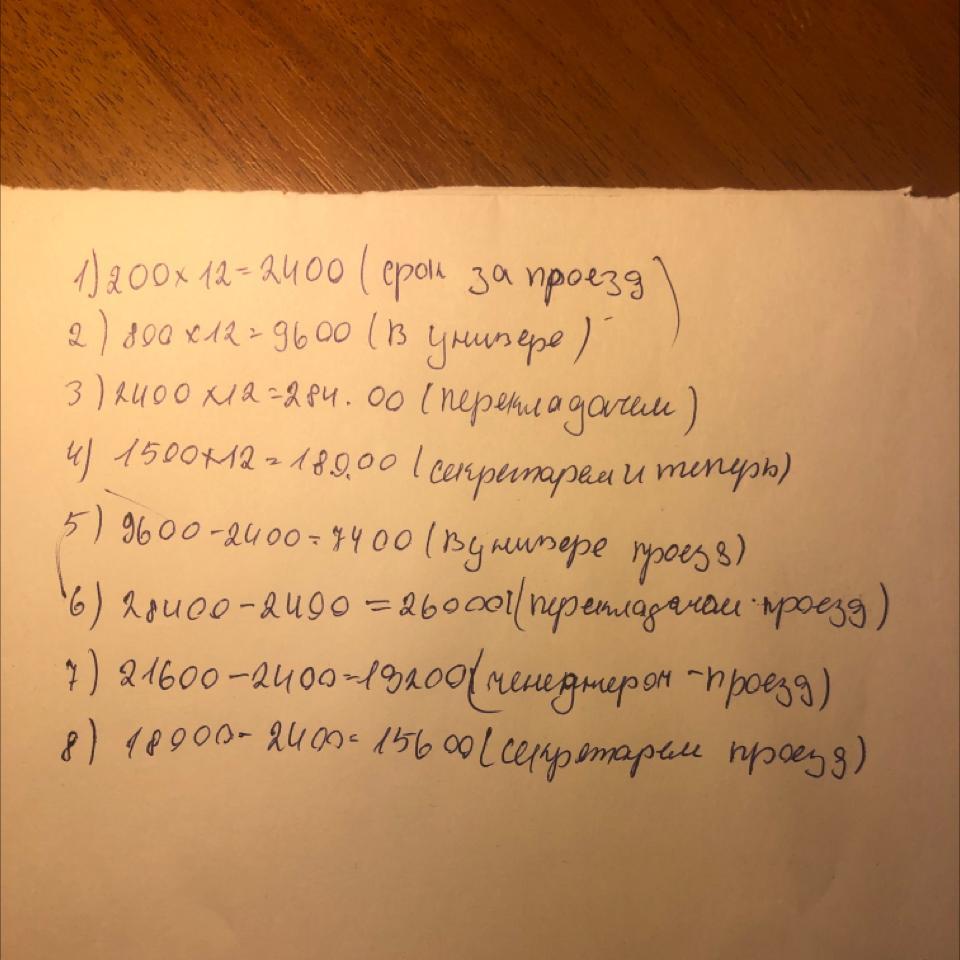 1) 200 × 12 = 2400 ( срок за проезд )
2) 800 × 12 = 9600 ( В универе )
3) 2400 × 12 = 284.00 ( перекладачем )
4) 1500 × 12 = 180.00 ( секретарем и теперь )
5) 9600 - 2400 = 7400 ( В универе проезд )
6) 28400 - 2400 = 26000 ( перекладачом - проезд )
7) 21600 - 2400 = 19200 ( менеджером - проезд )
8) 18000 - 2400 = 15600 ( секретарем проезд )